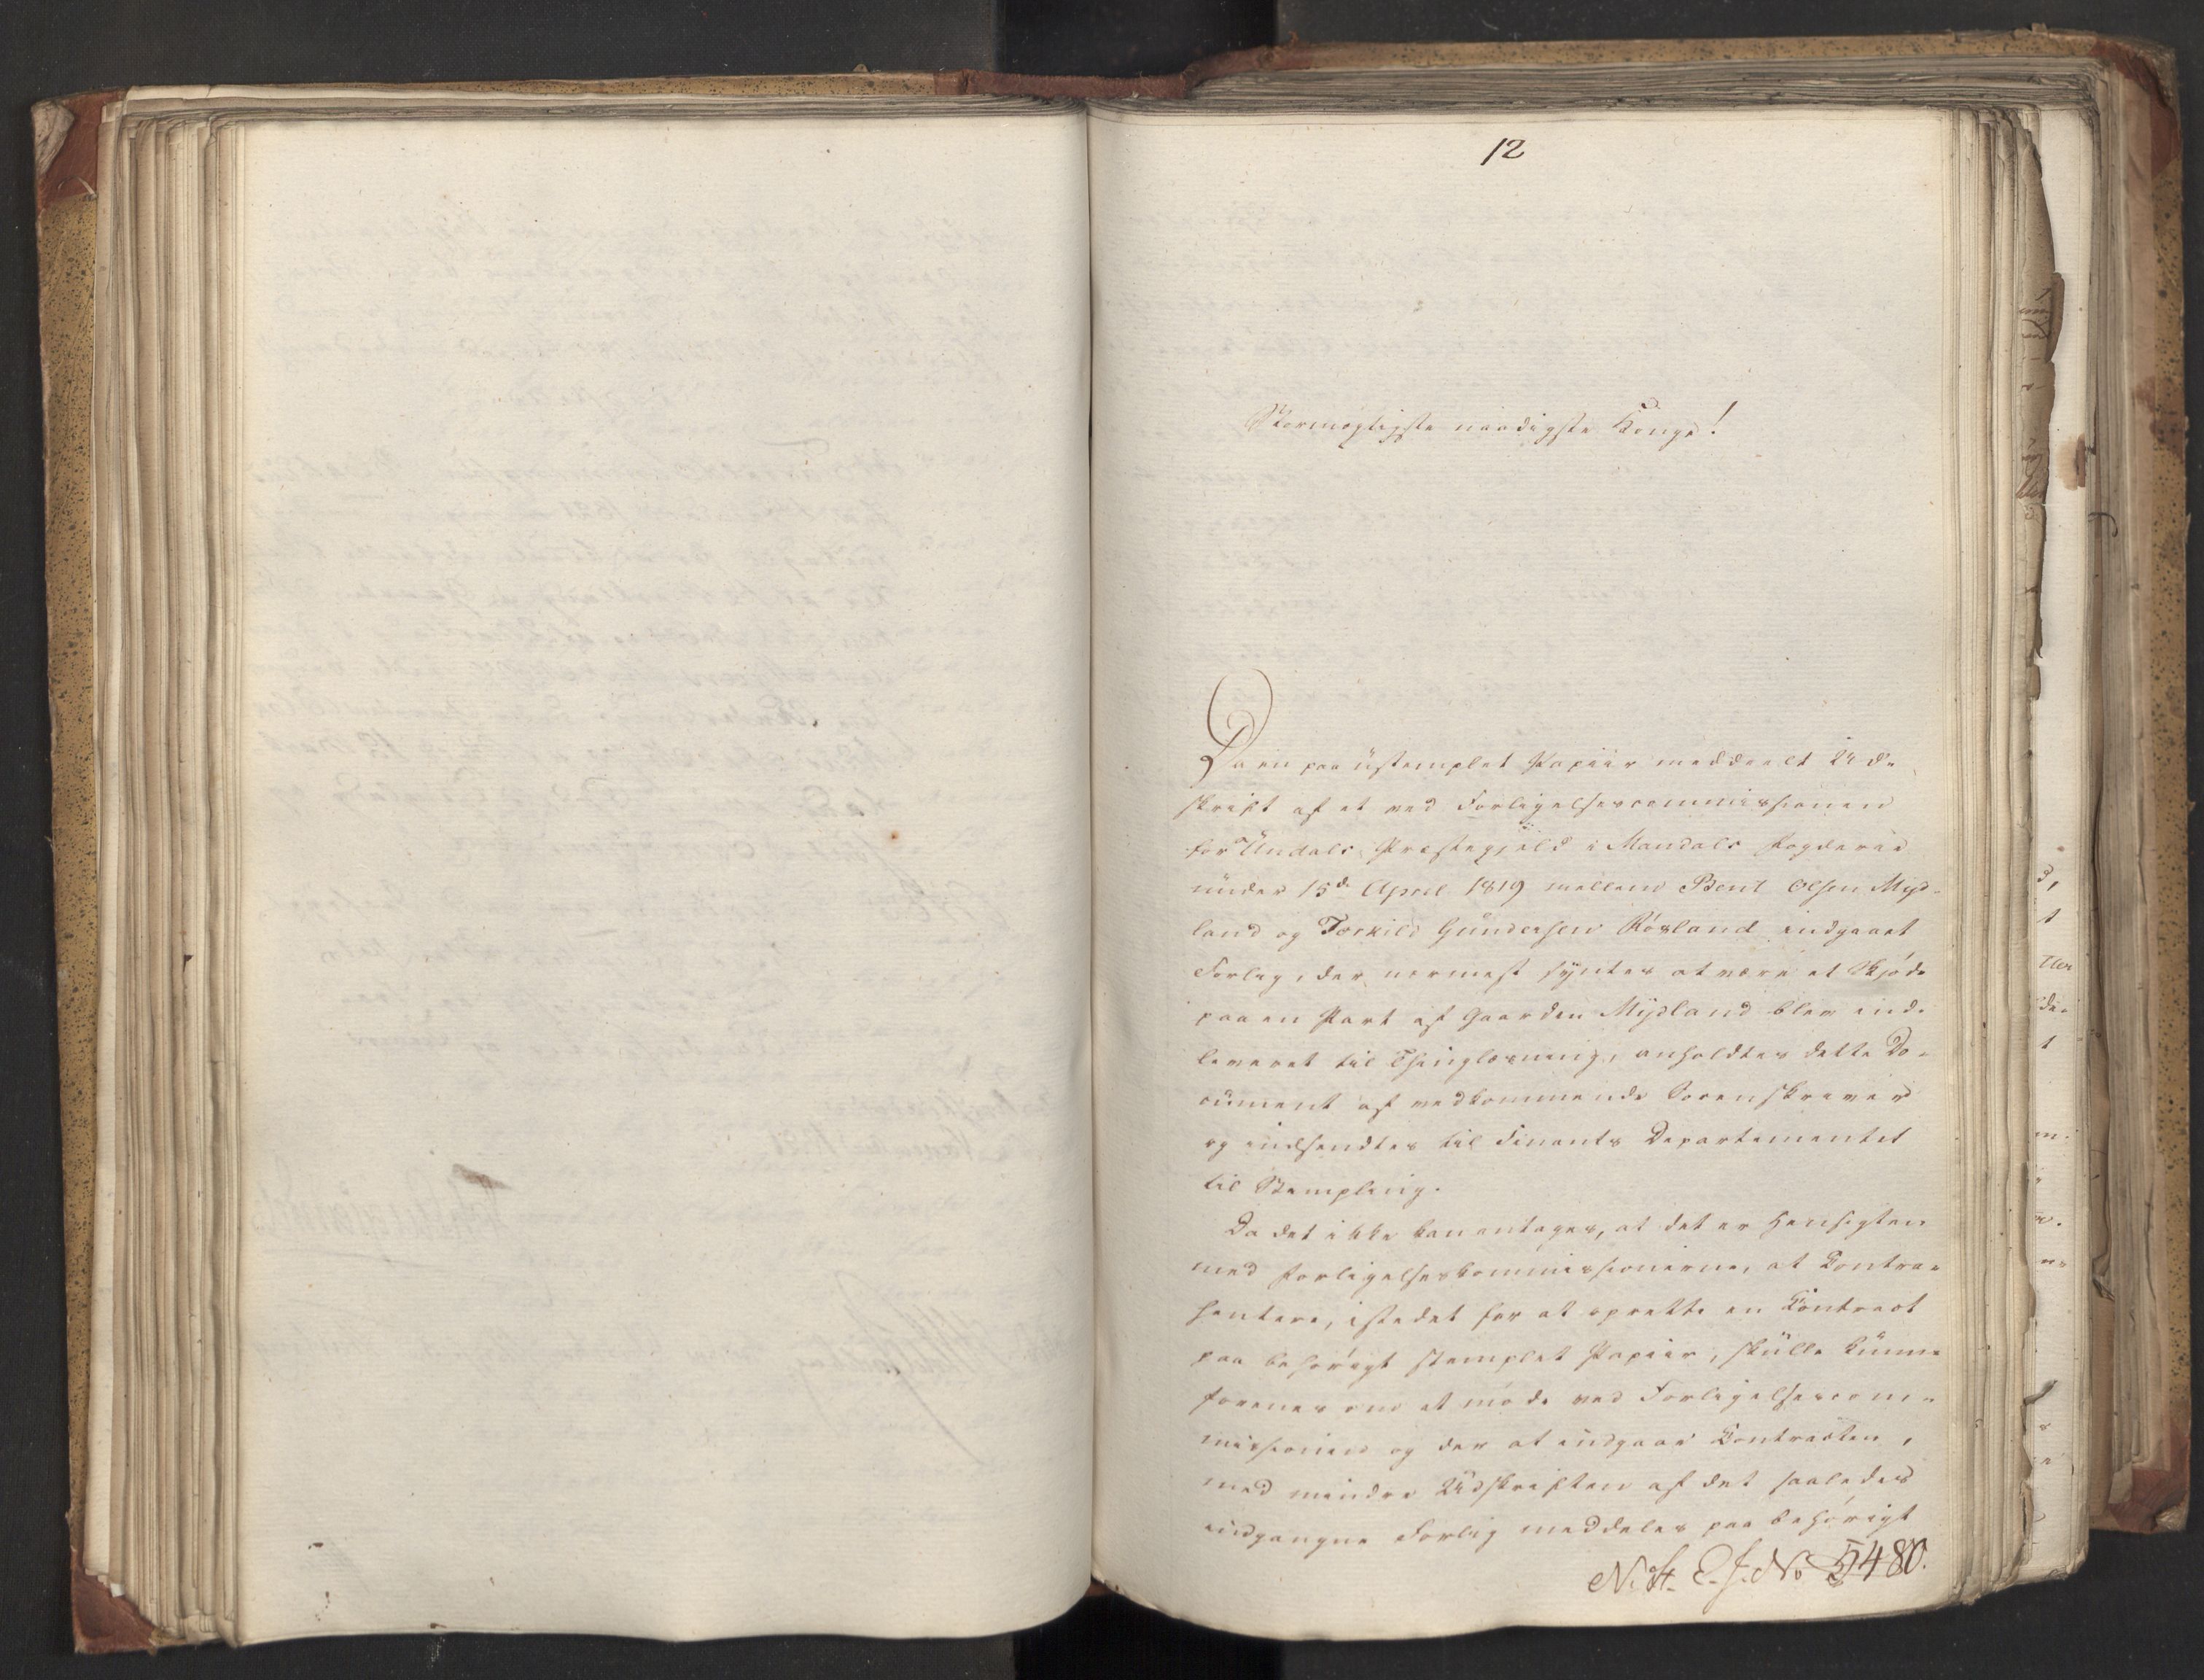 12
Stormægtigste naadigste Konge!
Da en paa ustemplet Papiir meddeelt Ud-
skrift af et ved Forligelsescommissionen
for Undals Præstegjeld i Mandals Fogderie
under 15de April 1819 mellem Bent Olsen Myd-
land og Torkild Gundersen Røsland indgaaet
Forlig, der nærmest syntes at være et Skjøde
paa en Part af Gaarden Mydland blev ind-
leveret til Thinglæsning, anholdtes dette Do-
cument af vedkommende Sorenskriver
og indsendtes til Finants Departementet
til Stempling.
Da det ikke kan antages, at det er Hensigten
med Forligelseskommissionerne, at Contra-
henterne, istedet for at oprette en Contract
paa behørigt stemplet Papiir, skulle kunne
forenes om at møde ved Forligelsescom-
missionen og der at indgaae Contracten,
med mindre Udskriften af det saaledes
indgangne Forlig meddeles paa behørigt
N. St. E. J. No 5480.